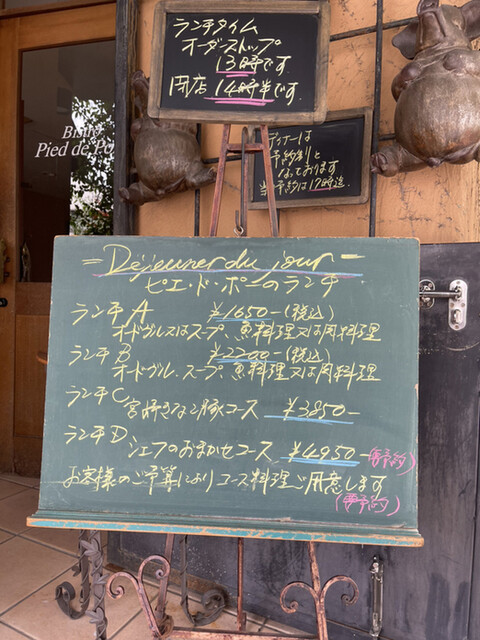 ランチタイム
オーダーストップ
13時です
閉店 14時半です.
ディナーは
予約制と
なっております
当予約は17時迄
Pied de Po
= Déjeuner du jour =
ピエ・ド・ポーのランチ
ランチA ¥1650-(税込)
オードヴル又はスープ、魚料理又は肉料理
ランチB ¥2200-(税込)
オードヴル.スープ、魚料理又は肉料理
ランチC
豚コース ¥3850-
ランチD
シェフのおまかせコース ¥4950-(要予約)
お客様のご予算によりコース料理ご用意します
(要予約)